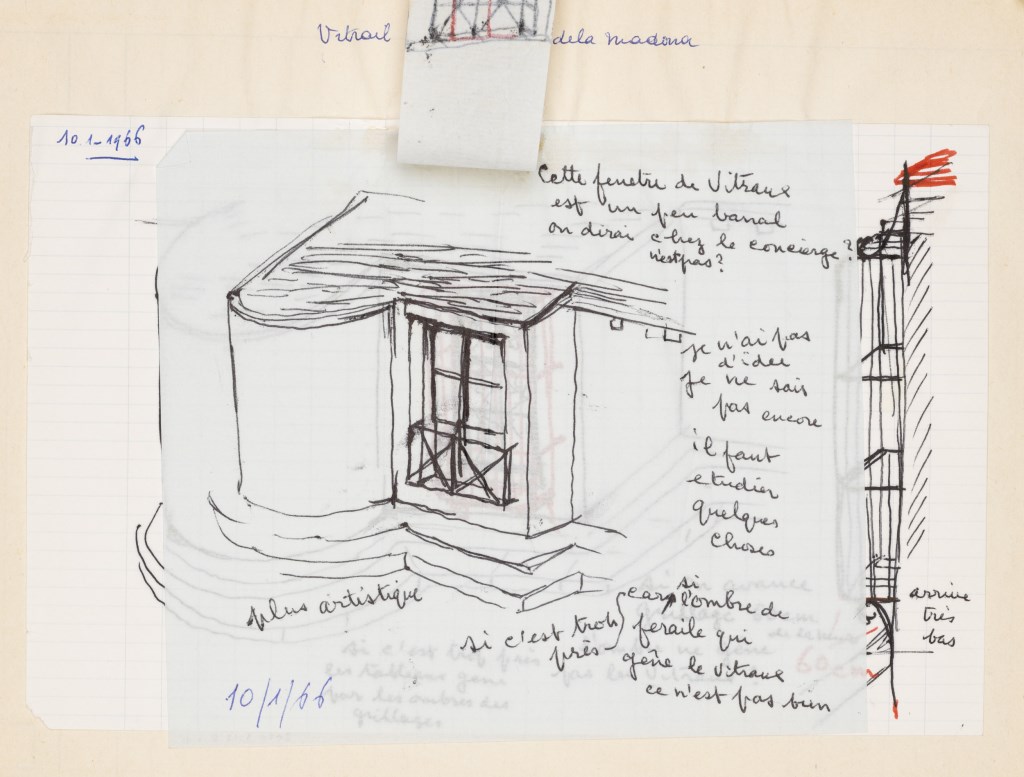 Vitrail dela madona
10.1-1966
Cette fenetre de Vitraux
est un peu banal
on dirai chez le concierge?
n'est pas?
je n'ai pas
d'idee
je ne sais
pas encore
il faut
etudier
quelques
choses
plus artistique
si c'est trop
près
car si
l'ombre de
feraile qui
gêne le vitraux
ce n'est pas bien
arrive
très
bas
10/1/66
si on avance
60 cm
si c'est trop près
les tableaux
par les ombres des
grillages
pas les Vitraux